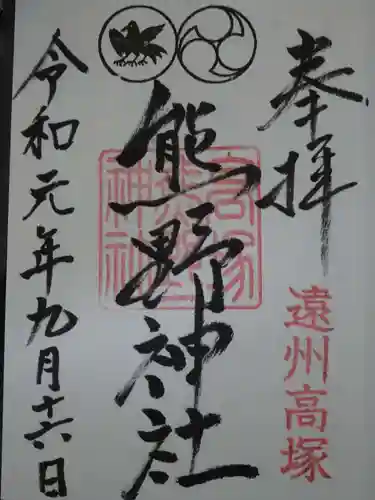 奉拝
遠州高塚
熊野神社
高塚熊野神社
令和元年九月十六日